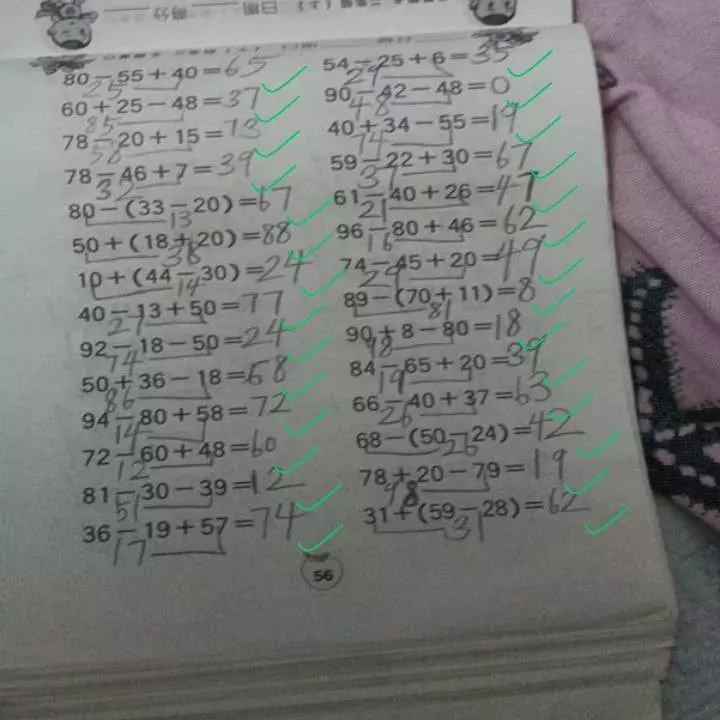 80-55+40=65
25
60+25-48=37
85
78-20+15=73
58
78-46+7=39
32
80-(33-20)=67
13
50+(18+20)=88
38
10+(44-30)=24
14
40-13+50=77
27
92-18-50=24
74
50+36-18=68
86
94-80+58=72
14
72-60+48=60
12
81-30-39=12
51
36-19+57=74
17
54-25+6=35
29
90-42-48=0
48
40+34-55=19
74
59-22+30=67
37
61-40+26=47
21
96-80+46=62
16
74-45+20=49
29
89-(70+11)=8
81
90+8-80=18
98
84-65+20=39
19
66-40+37=63
26
68-(50-24)=42
26
78+20-79=19
98
31+(59-28)=62
31
56